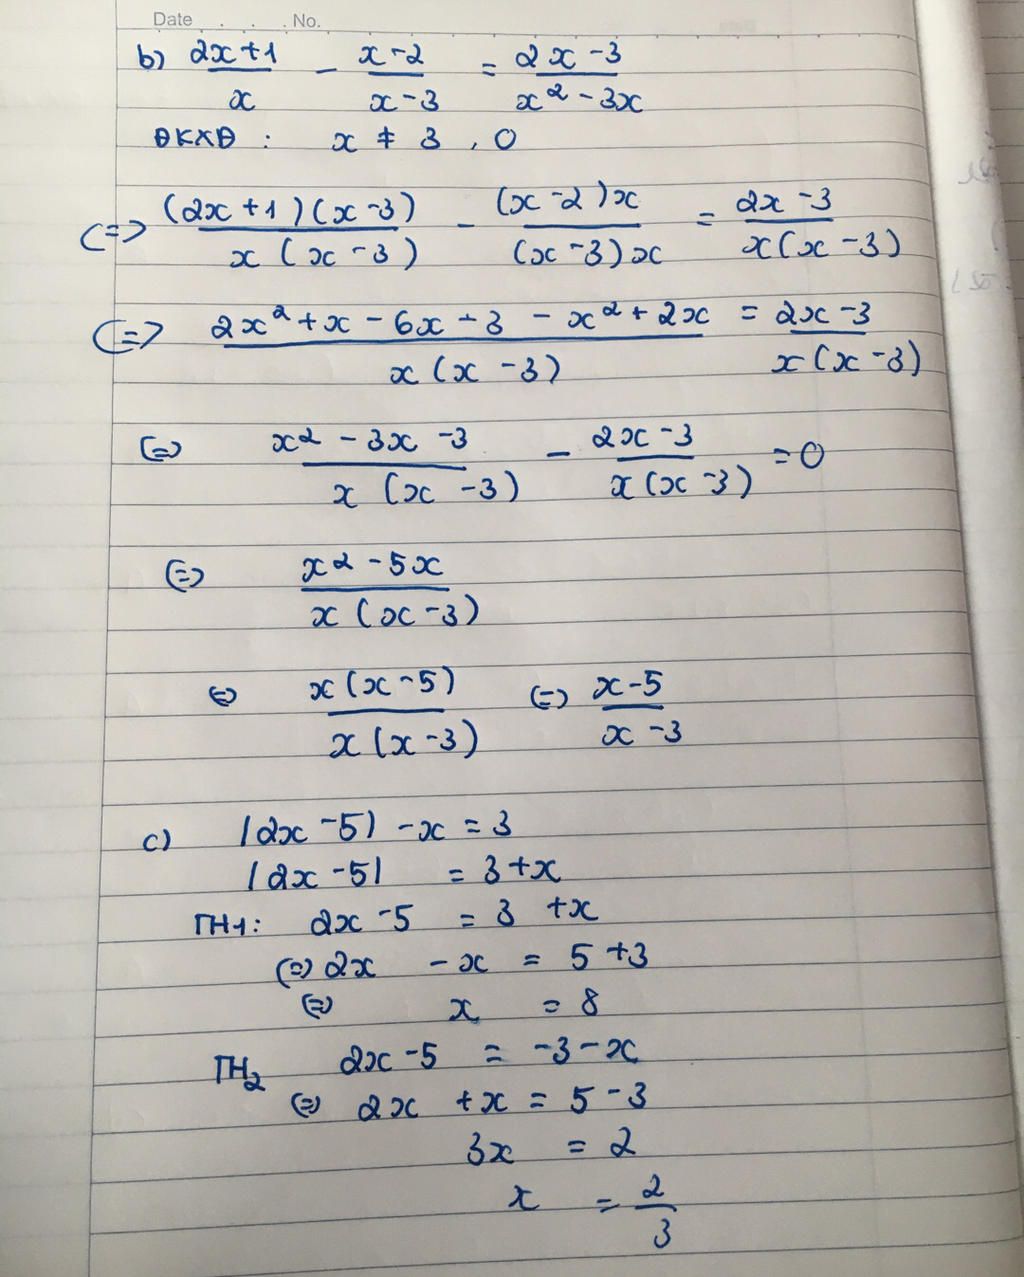 Date . . . No.
b) (2x+1)/x - (x-2)/(x-3) = (2x-3)/(x²-3x)
ĐKXĐ : x ≠ 3 , 0
<=> ((2x+1)(x-3))/(x(x-3)) - ((x-2)x)/((x-3)x) = (2x-3)/(x(x-3))
<=> (2x²+x-6x-3-x²+2x)/(x(x-3)) = (2x-3)/(x(x-3))
<=> (x²-3x-3)/(x(x-3)) - (2x-3)/(x(x-3)) = 0
<=> (x²-5x)/(x(x-3))
<=> (x(x-5))/(x(x-3)) <=> (x-5)/(x-3)
c) |2x-5| -x = 3
|2x-5| = 3+x
TH1: 2x-5 = 3+x
<=> 2x -x = 5+3
<=> x = 8
TH2 2x-5 = -3-x
<=> 2x +x = 5-3
3x = 2
x = 2/3